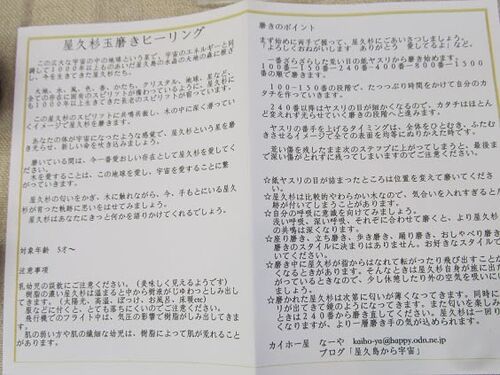 屋久杉玉磨きヒーリング
この広大な宇宙の中の地球という星で、宇宙のエネルギーと同
調して1000年以上ものあいだ屋久島の水晶の大地の森に根ざ
し、今を生きてきた屋久杉たち。
大地、水、風、色、春、かたち、クリスタル、地球、星など、
全ての存在に固有のスピリットが備わっているように、屋久杉に
も1000年以上生きてきた長老のスピリットが有ります。
この屋久杉のスピリットに共鳴共振し、木の中に深く滑ってい
くイメージで屋久杉を磨きます。
あなたの体が宇宙になったような感覚で、屋久杉という星を磨
き光らせ、新しい命を吹き込みましょう。
磨いている間は、今一番愛おしい存在として屋久杉を愛してく
ださい。
木を愛することは、この地球を愛し、宇宙を愛することに繋
がっていきます。
屋久杉の匂いをかぎ、木に触れながら、今、手もとにいる屋久
杉が育った軌跡に思いをはせてみましょう。
屋久杉はあなたにきっと何かを語りかけてくれるでしょう。
対象年齢 5才~
注意事項
乳幼児の誤飲にご注意ください。(美味しく見えるようです)
樹脂の濃い屋久杉は温まると中から樹液がじゅわっとしみ出し
てきます。(太陽光、高温、ぽっけ、お風呂、床暖etc)
服などに付くと、とても落ちにくいのでご注意ください。
飛行機でのフライト中は、気圧の影響で樹脂がしみ出してきま
す。
肌の弱い方や肌の繊細な幼児は、樹脂によって肌が荒れること
があります。
磨きのポイント
まず始めに両手で握って、屋久杉にごあいさつしましょう。
「よろしくおねがいします ありがとう 愛してるよ」など。
一番ざらざらした荒い目の紙ヤスリから磨き始めます。
100ー150ー240ー400ー800ー1500
の順で磨きます。
100ー150の段階で、たっぷり時間をかけて自分のカ
タチを作っていきます。
240番以降はヤスリの目が細かくなるので、カタチはほとん
ど変えれず光らせていく磨きの段階へと進みます。
ヤスリの番手を上げるタイミングは、全体をひとむき、ふたむ
きさせるイメージで全ての表面を均等にぬりかえた時です。
荒い傷を残したまま次のステップに上がってしまうと、最後ま
で深い傷がとれずに残ってしまいますのでご注意ください。
☆紙ヤスリの目が詰まったところは位置を変えて磨いてくださ
い。
☆屋久杉は比較的やわらかい木なので、気合いを入れすぎると爪
跡が付いてしまうことがあります。
☆自分の呼吸に意識を向けてみましょう。
浅い呼吸、深い呼吸、それぞれに合わせて磨くと、より屋久杉と
の共鳴は深くなります。
☆座り磨き、立ち磨き、歩き磨き、踊り磨き、おしゃべり磨き
磨きのスタイルに決まりはありません。お好きなスタイルで磨い
てください。
☆磨き中に屋久杉が指からはなれて転がったり飛び出すことが
くなるときがあります。そんなときは屋久杉自身が旅に出たがっ
がっているときなので、少し休憩したり外の空気を吸いに出
ましょう。
☆磨かれた屋久杉は次第に匂いが薄くなってきます。同時にツ
リが出てきて鏡のようになってきます。また匂いを楽しみた
ときは240番から磨き直してください。屋久杉は一回り小
なりますが、より一層磨き手の気が込められます。
カイホー屋 なーや kaiho-ya@happy.odn.ne.jp
ブログ「屋久島から宇宙」